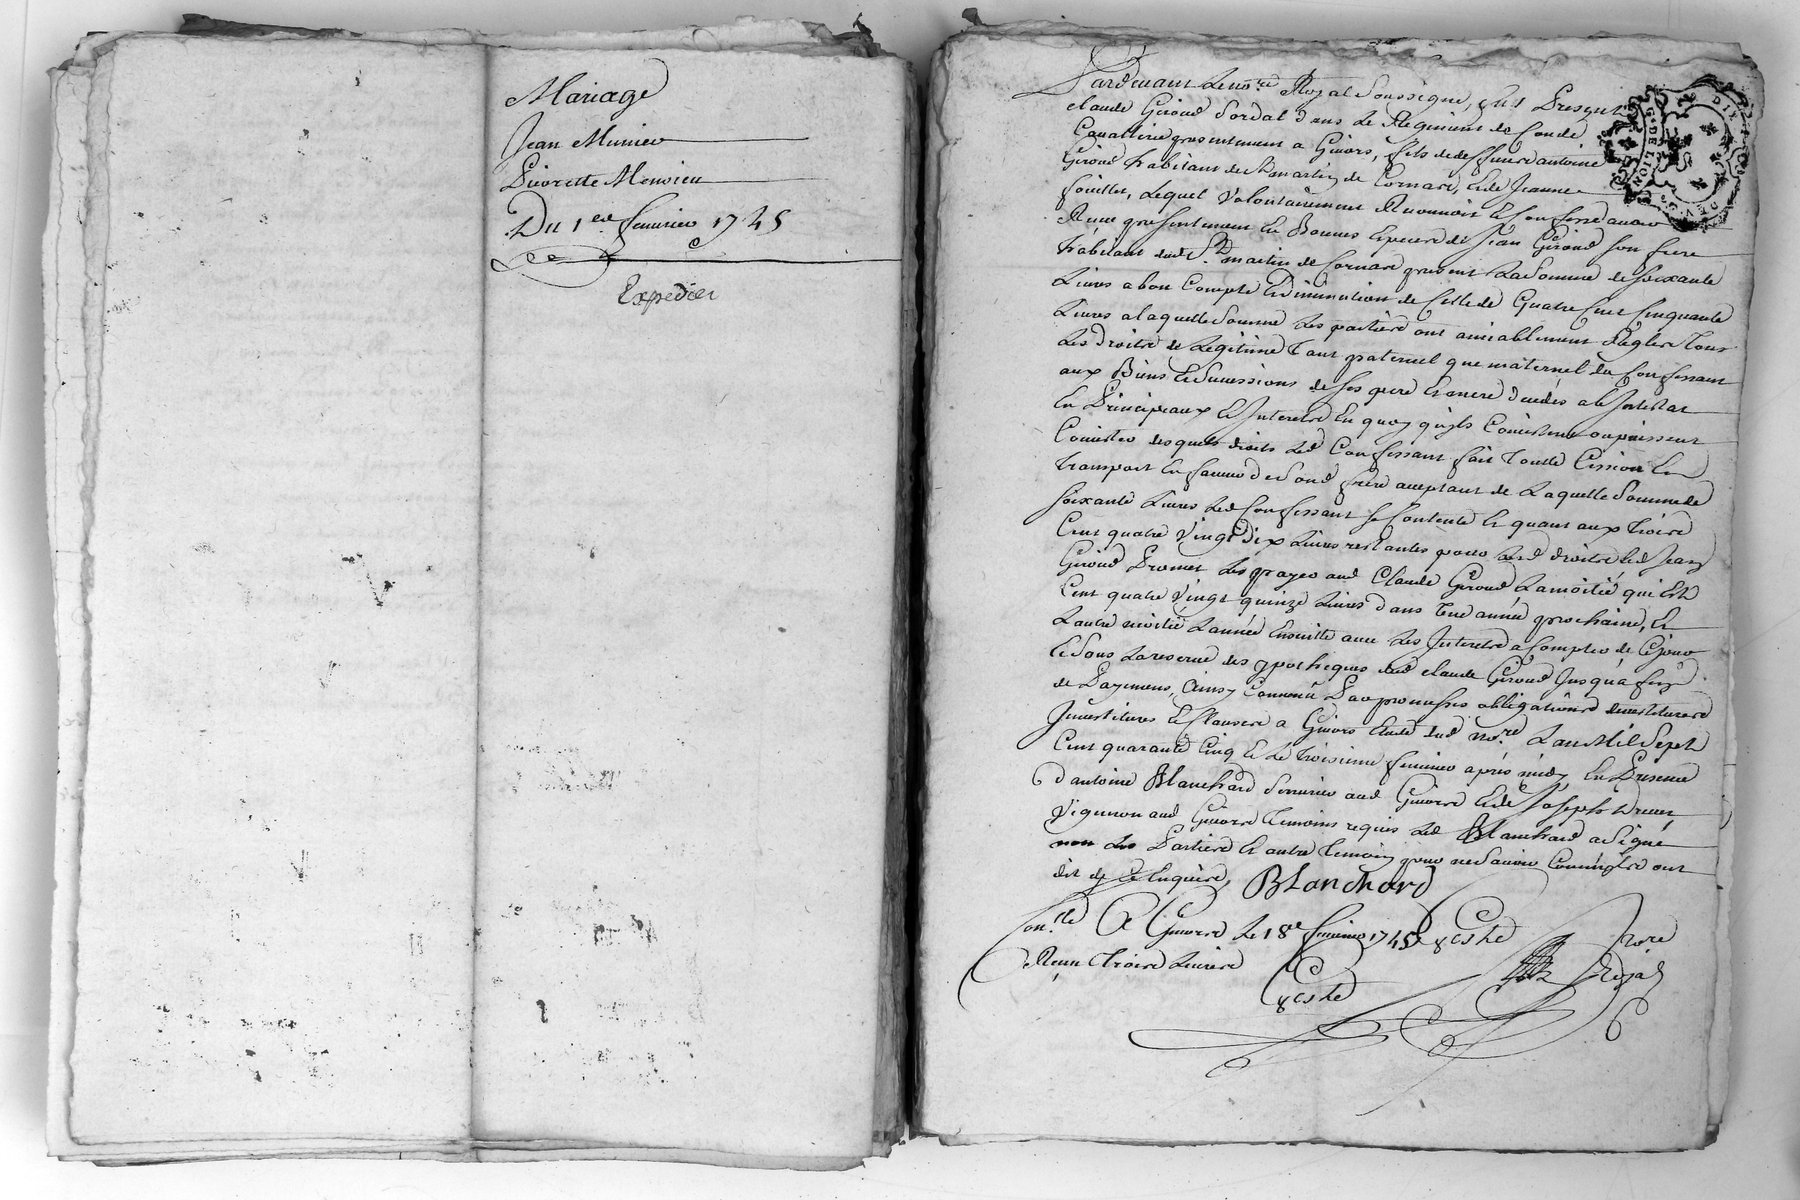 Mariage
Jean Munier
Pierrette Monsieu
Du 1er feuurier 1745
Expedier
Pardeuant Le nore Royal Soussigné, fut Present
claude Giroud Soldat dans Le Regiment de Condé
Cauallerie presentement a Giuors, fils de deffunct antoine
Giroud habitant de St martin de Cornas, et de Jeanne
fouillet, Lequel Volontairement Reconnoit et Confesse auoir
Receu presentement En Bonnes Especes de Jean Giroud Son frere
habitant dud St martin de Cornas present La Somme de soixante
Liures a bon Compte et diminution de Celle de quatre Cent Cinquante
Liures a laquelle Somme Les parties ont amiablement Reglés Tous
Les droits de Legitime Tant paternel que maternel du Confessant
aux Biens et Successions de ses pere et mere decedés ab Intestat
En Principeaux et Interests En quoy qu'ils Consistent ou puissent
Consister desquels droits Led Confessant fait Toutte Cession et
Transport En faueur de Sond frere acceptant de Laquelle Somme de
soixante Liures Led Confessant Se Contente et quant aux Trois
Cent quatre Vingt dix Liures restantes pour Lesd droits led Jean
Giroud Promet Les payer aud Claude Giroud La moitié qui est
Cent quatre Vingt quinze Liures dans Une année prochaine, et
Lautre moitié Lannée Ensuitte auec Les Interests a Compter de Cejour
et Sous La reserue des ypotheques dud claude Giroud Jusqu'a fin
de Payement, Ainsy Conuenu Par promesses obligations
Inuestitures et Clauses a Giuors Etude dud nore Lan Mil Sept
Cent quarante Cinq et Le Troisieme feuurier après midy En Presence
d'antoine Blanchard Serrurier aud Giuors et de Joseph
Vigneron aud Giuors Temoins requis Led Blanchard a Signé
non Les Parties et autre Temoin pour ne Sauoir Comm'ils ont
dit de ce Enquis, Blanchard
Conlé A Giuors Le 18e feuurier 1745
Receu Trois Liures
nore
Royal